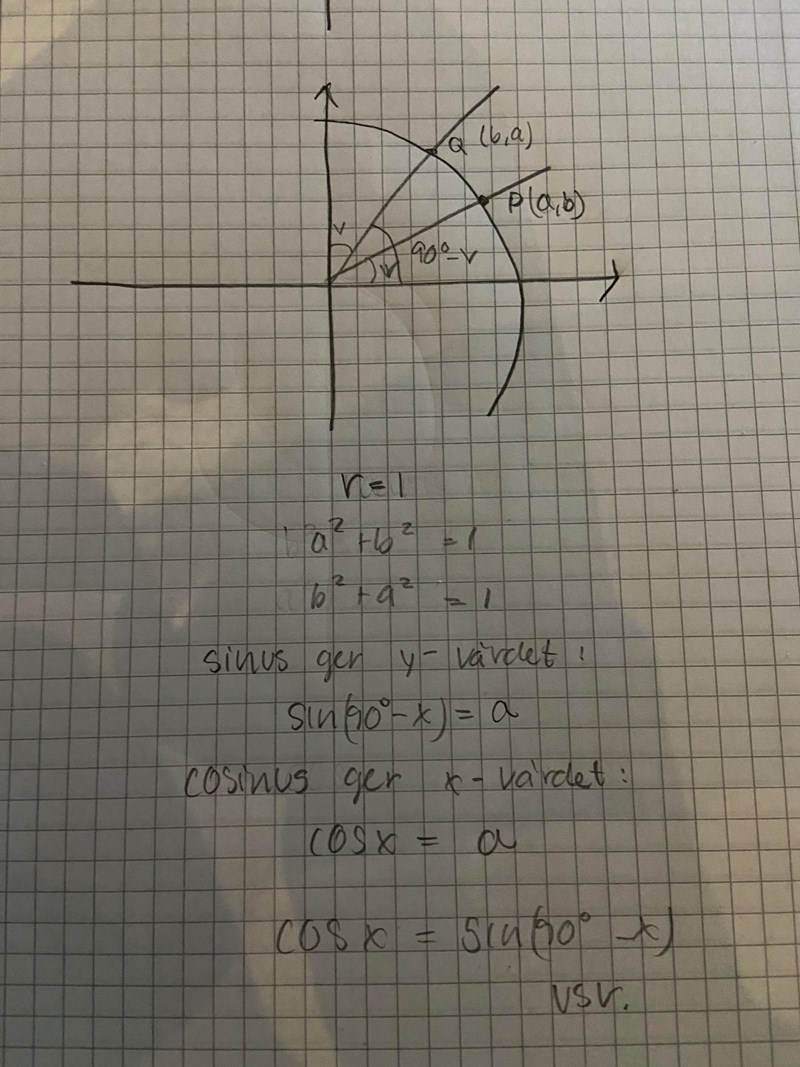 Q (b,a)
P(a,b)
v
90°-v
v
r=1
a² + b² = 1
b² + a² = 1
sinus ger y-värdet:
sin(90°-x) = a
cosinus ger x-värdet:
cosx = a
cosx = sin(90°-x)
vsv.